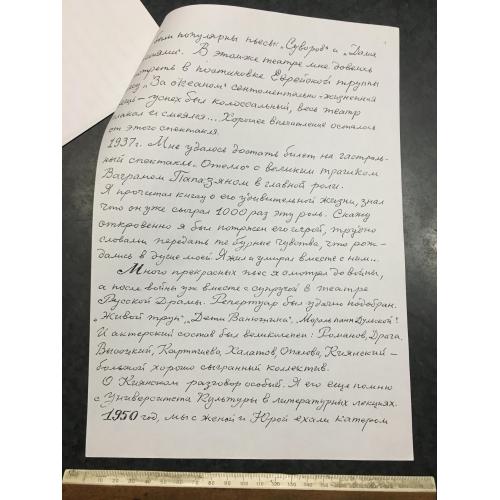 были популярны пьесы: „Суворов" и „Дама
В этом же театре мне довелось
смотреть в постановке Еврейской труппы
„За океаном" сентоментально-жизненная
вещь – успех был колоссальный, весь театр
плакал и смеялся... Хорошее впечатление осталось
от этого спектакля.
1937г. Мне удалось достать билет на гастроль-
ный спектакль „Отелло" с великим трагиком
Ваграмом Папазяном в главной роли.
Я прочитал книгу о его удивительной жизни, знал
что он уже сыграл 1000 раз эту роль. Скажу
откровенно я был потрясен его игрой, трудно
словами передать те бурные чувства, что рож-
дались в душе моей Я жил и умирал вместе с ним...
Много прекрасных пьес я смотрел до войны,
а после войны уж вместе с супругой в театре
Русской Драмы. Репертуар был удачно подобран.
„Живой труп", „Дети Ванюшина", „Мораль пани Дульской"!
И актерский состав был великолепен: Романов, Драга,
Высоцкий, Карташева, Халатов, Опалова, Киянский –
большой хорошо сыгранный коллектив.
О Киянском разговор особый. Я его еще помню
с Университета Культуры в литературных лекциях.
1950 год, мы с женой и Юрой ехали катером